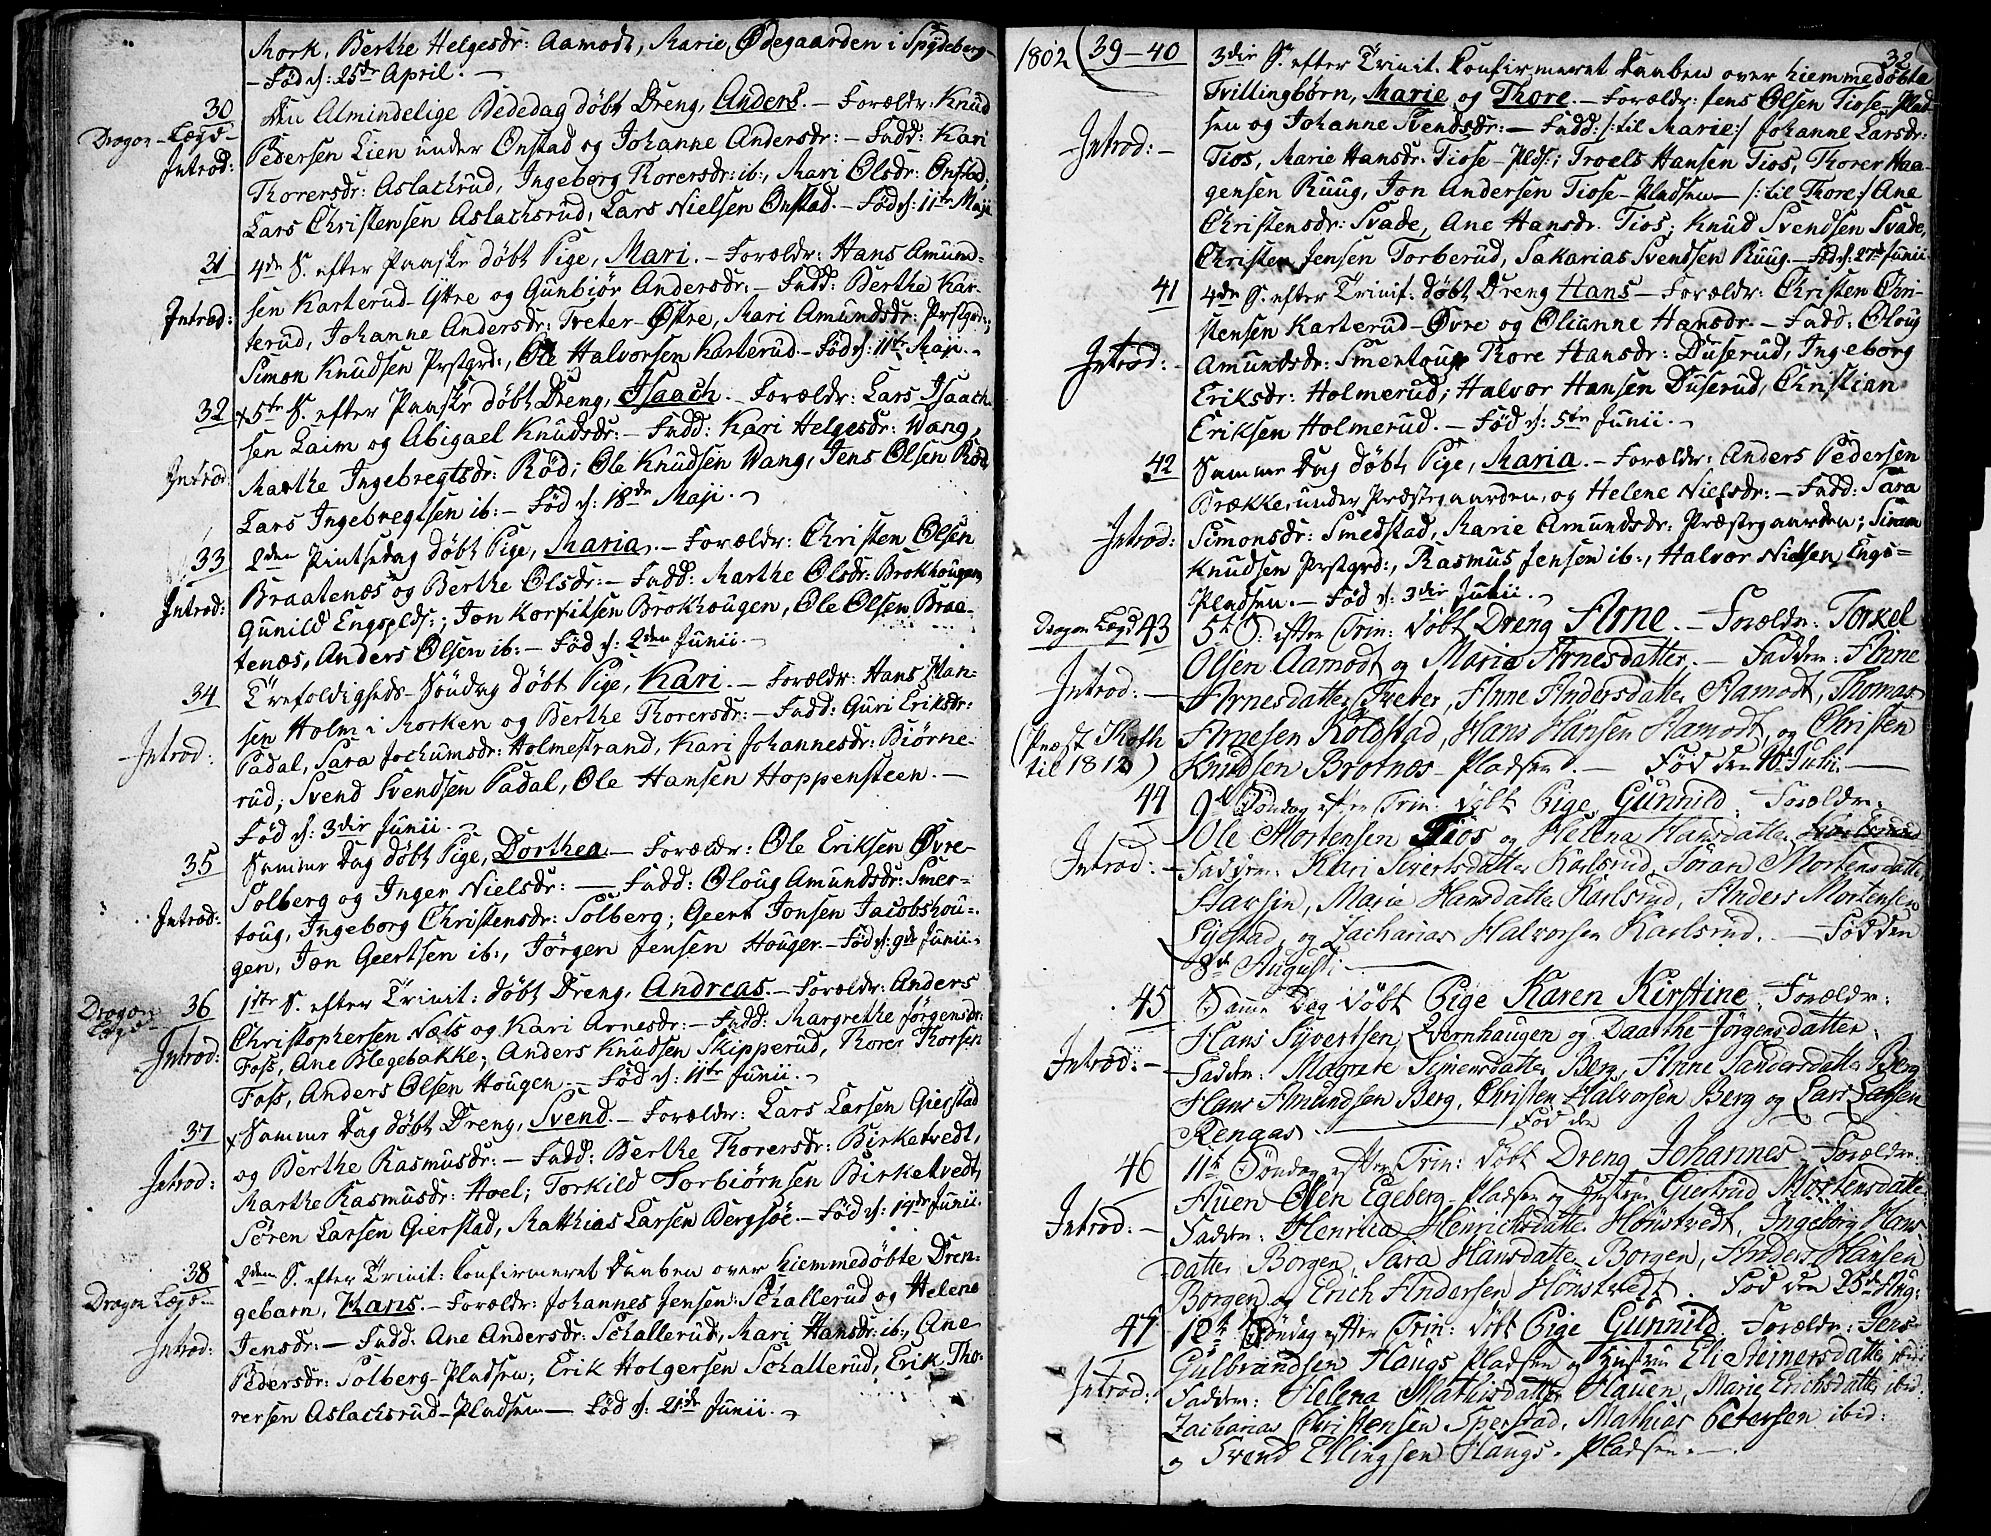 Mork, Berthe Helgesdr: Aamodt, Marie Ødegaarden i Spydeberg
– Fød d: 25de April. –
30 Den Almindelige Bededag døbt Dreng, Anders. – Forældr: Knud
Dragon-Lægd
Introd: Pedersen Lien under Onstad og Johanne Andersdr: – Fadd: Kari
Thorersdr: Aslachrud, Ingeborg Thorersdr: ib:, Mari Olsdr: Onstad,
Lars Christensen Aslachsrud, Lars Nielsen Onstad. – Fød d: 11te Maji
31 4de S. efter Paaske døbt Pige, Mari. – Forældr: Hans Amund-
Introd: sen Karterud-Yttre og Gunbiør Andersdr: – Fadd: Berthe Kar-
terud, Johanne Andersdr: Tveter-Østre, Mari Amundsdr: Prstgrd:,
Simon Knudsen Prstgrd:, Ole Halvorsen Karterud. – Fød d: 11te Maji. –
32 x 5te S. efter Paaske døbt Dreng, Isaach. – Forældr: Lars Isaach-
sen Laim og Abigael Knudsdr: – Fadd: Kari Helgesdr: Wang,
Introd: Marthe Ingebregtsdr: Röd; Ole Knudsen Wang, Jens Olsen Röd,
Lars Ingebregtsen ib: – Fød d: 18de Maji. –
33 2den Pintsedag døbt Pige, Maria. – Forældr: Christen Olsen
Introd: Braatenæs og Berthe Olsdr: – Fadd: Marthe Olsdr: Brokhougen,
Gunild Engsplds:; Jon Korfitsen Brokhougen, Ole Olsen Braa-
tenæs, Anders Olsen ib: – Fød d: 2den Junii. –
34 Trefoldigheds-Søndag døbt Pige, Kari. – Forældr: Hans Han-
Introd: sen Holm i Morken og Berthe Thorersdr: – Fadd: Guri Eriksdr:
Padal, Sara Jochumsdr: Holmestrand, Kari Johannesdr: Biørne-
rud; Svend Svendsen Padal, Ole Hansen Hoppensteen. –
Fød d: 3die Junii. –
35 Samme Dag døbt Pige, Dorthea. – Forældr: Ole Eriksen Øvre-
Solberg og Inger Nielsdr: – Fadd: Oloug Amundsdr: Smer-
Introd: toug, Ingeborg Christensdr: Solberg; Geert Jonsen Jacobshou-
gen, Jon Geertsen ib:, Jørgen Jensen Houger – Fød d: 9de Junii. –
36 1ste S. efter Trinit: døbt Dreng, Andreas – Forældr: Anders
Dragon Lægd
Introd: Christophersen Næs og Kari Arnesdr: – Fadd: Margrethe Jørgensdr:
Foss, Ane Blegebakke; Anders Knudsen Skipperud, Thorer Thorsen
Foss, Anders Olsen Hougen. – Fød d: 11te Junii. –
37 x Samme Dag døbt Dreng, Svend. – Forældr: Lars Larsen Gierstad
og Berthe Rasmusdr: – Fadd: Berthe Thorersdr: Birketvedt,
Introd: Marthe Rasmusdr: Hoel; Torkild Torbiørnsen Birketvedt,
Søren Larsen Gierstad, Matthias Larsen Bergsøe. – Fød d: 14de Junii.
38 2den S. efter Trinit: Confirmeret Daaben over hiemmedøbte Dren-
Dragon Lægd gebarn, Hans. – Forældr: Johannes Jensen Schallerud og Helene
Introd: Jensdr: – Fadd: Ane Andersdr: Schallerud, Mari Hansdr: ib:, Ane
Pedersdr: Solberg-Pladsen; Erik Holgersen Schallerud, Erik Tho-
rersen Aslachsrud-Pladsen – Fød d: 21de Junii. –
1802 32
39–40 3die S. efter Trinit. Confirmeret Daaben over hiemmedøbte
Tvillingbørn, Marie og Thore. – Forældr: Jens Olsen Tiose-Plad-
Introd: – sen og Johanne Svendsdr: – Fadd: /: til Marie:/ Johanne Larsdr:
Tios, Marie Hansdr: Tiose-Plds:; Troels Hansen Tios, Thorer Haa-
gensen Ruug, Jon Andersen Tiose-Pladsen – /: til Thore:/ Ane
Christensdr: Svade, Ane Hansdr. Tios; Knud Svendsen Svade,
Christen Jensen Torberud, Sakarias Svendsen Ruug. – Fød d: 27de Junii
41 4de S. efter Trinit: døbt Dreng Hans – Forældr: Christen Chri-
stensen Karterud-Øvre og Olianne Hansdr. – Fadd: Oloug
Introd: – Amundsdr: Smertoug, Thore Hansdr: Duserud, Ingeborg
Eriksdr: Holmerud; Halvor Hansen Duserud, Christian
Eriksen Holmerud. – Fød d: 5te Junii. –
42 Samme Dag døbt Pige, Maria. – Forældr: Anders Pedersen
Brække, under Præstegaarden, og Helene Nielsdr: – Fadd: Sara
Introd: Simonsdr: Smedstad, Marie Amundsdr: Præstegaarden; Simon
Knudsen Prstgrd:, Rasmus Jensen ib:, Halvor Nielsen Engs-
Pladsen. – Fød d: 3die Junii. –
Dragon Lægd 43 5te S: efter Trin: døbt Dreng Arne. – Forældre: Torkel
Olsen Aamodt og Maria Arnesdatter. – Faddere: Anne
Introd: – Arnesdatter Tveter, Anne Andersdatter Aamodt, Thomas
(Præst Roth Arnesen Koldstad, Hans Hansen Aamodt, og Christen
til 1812) Knudsen Brotnæs-Pladsen. – Fød den 10de Julii. –
44 9de Søndag efter Trin: døbt Pige Gunnild. Forældre:
Ole Mortensen Tios og Helena Hansdatter
Introd: – Faddere: Kari Sivertsdatter Karlsrud, Søran Mortensdatter
Stavsin, Marie Hansdatter Karlsrud, Anders Mortensen
og Zacharias Halvorsen Karlsrud. – Fød den
8de August. –
45 Samme Dag døbt Pige Karen Kirstine. Forældre:
Hans Syvertsen Qvernhaugen og Daarthe Jørgensdatter.
Introd: – Faddere: Magrete Simensdatter Berg, Anne Sandersdatter Berg
Hans Amundsen Berg, Christen Halvorsen Berg og Lars Larsen
Rengaas. – Fød den
46 11te Søndag efter Trin: døbt Dreng Johannes – Forældre:
Auen Olsen Egeberg-Pladsen og Hustrue Giertrud Mortensdatter
Introd: – Faddere: Henrica Henrichsdatter Hönstvedt, Ingeborg Hans-
datter Borgen, Sara Hansdatter Borgen, Anders Hansen
Borgen og Erich Andersen Hönstvedt. Fød den 25de Aug:
47 12te Søndag efter Trin: døbt Pige Gunnild. Forældre: Jens
Gulbrandsen Haugs Pladsen og Hustrue Eli Steinersdatter ibid:
Introd: Faddere: Helena Mathisdatter Hauen, Marie Erichsdatter ibid:
Zacharias Christensen Sperstad, Mathias Petersen ibid:
og Svend Ellingsen Haugs-Pladsen. –